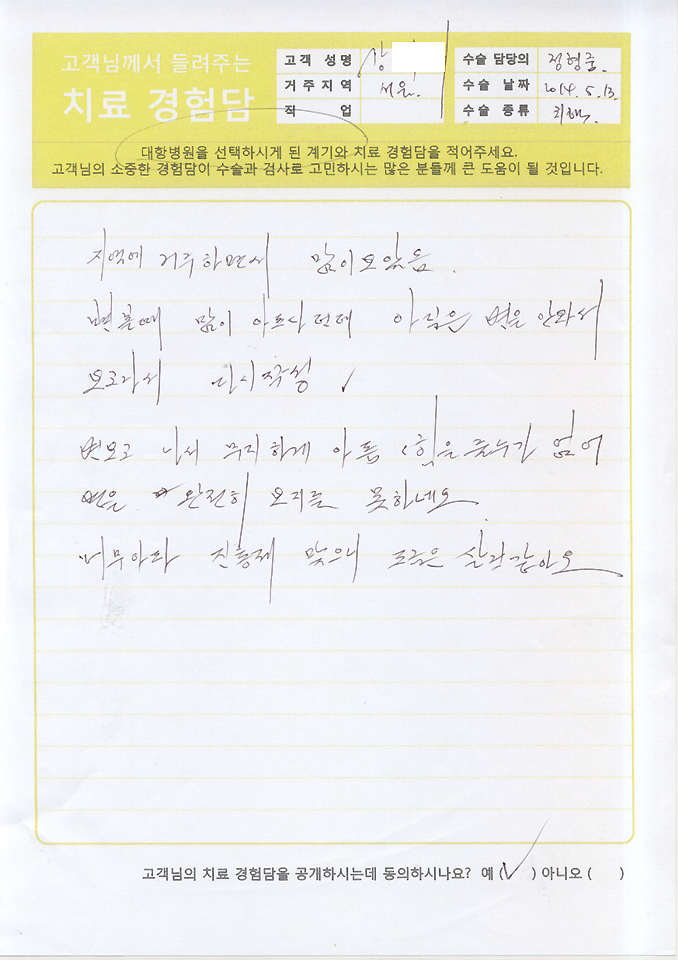 고객님께서 들려주는
치료 경험담
고객 성명 강
거주지역 서울.
직 업
수술 담당의 정형준.
수술 날짜 2014. 5. 13.
수술 종류 치핵.
대항병원을 선택하시게 된 계기와 치료 경험담을 적어주세요.
고객님의 소중한 경험담이 수술과 검사로 고민하시는 많은 분들께 큰 도움이 될 것입니다.
지역에 거주하면서 많이 보았음.
변볼때 많이 아프다던데 아직은 변을 안봐서
모르다서 다시작성
변보고 나서 무지하게 아픔 힘을 줄수가 없어
변을 완전히 보지를 못하네요
너무아파 진통제 맞으니 조금은 살것같아요
고객님의 치료 경험담을 공개하시는데 동의하시나요? 예 (√) 아니오 ( )